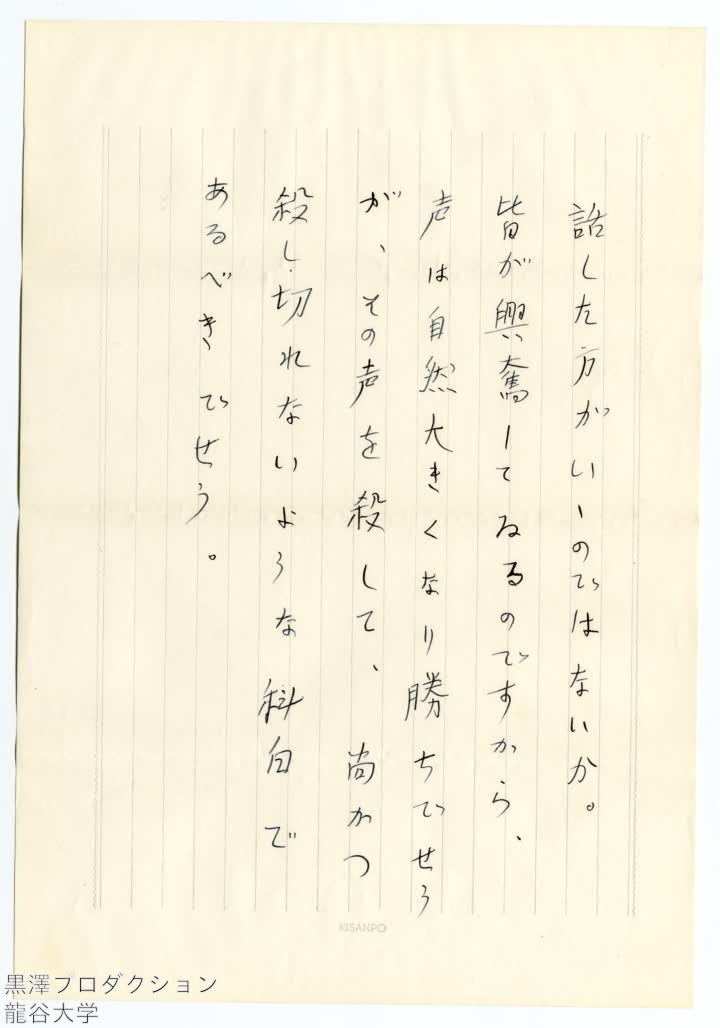 話した方がいゝのではないか。
皆が興奮してゐるのですから、
声は自然大きくなり勝ちでせう
が、その声を殺して、尚かつ
殺し切れないような科白で
あるべきでせう。
KISANPO
黒澤プロダクション
龍谷大学